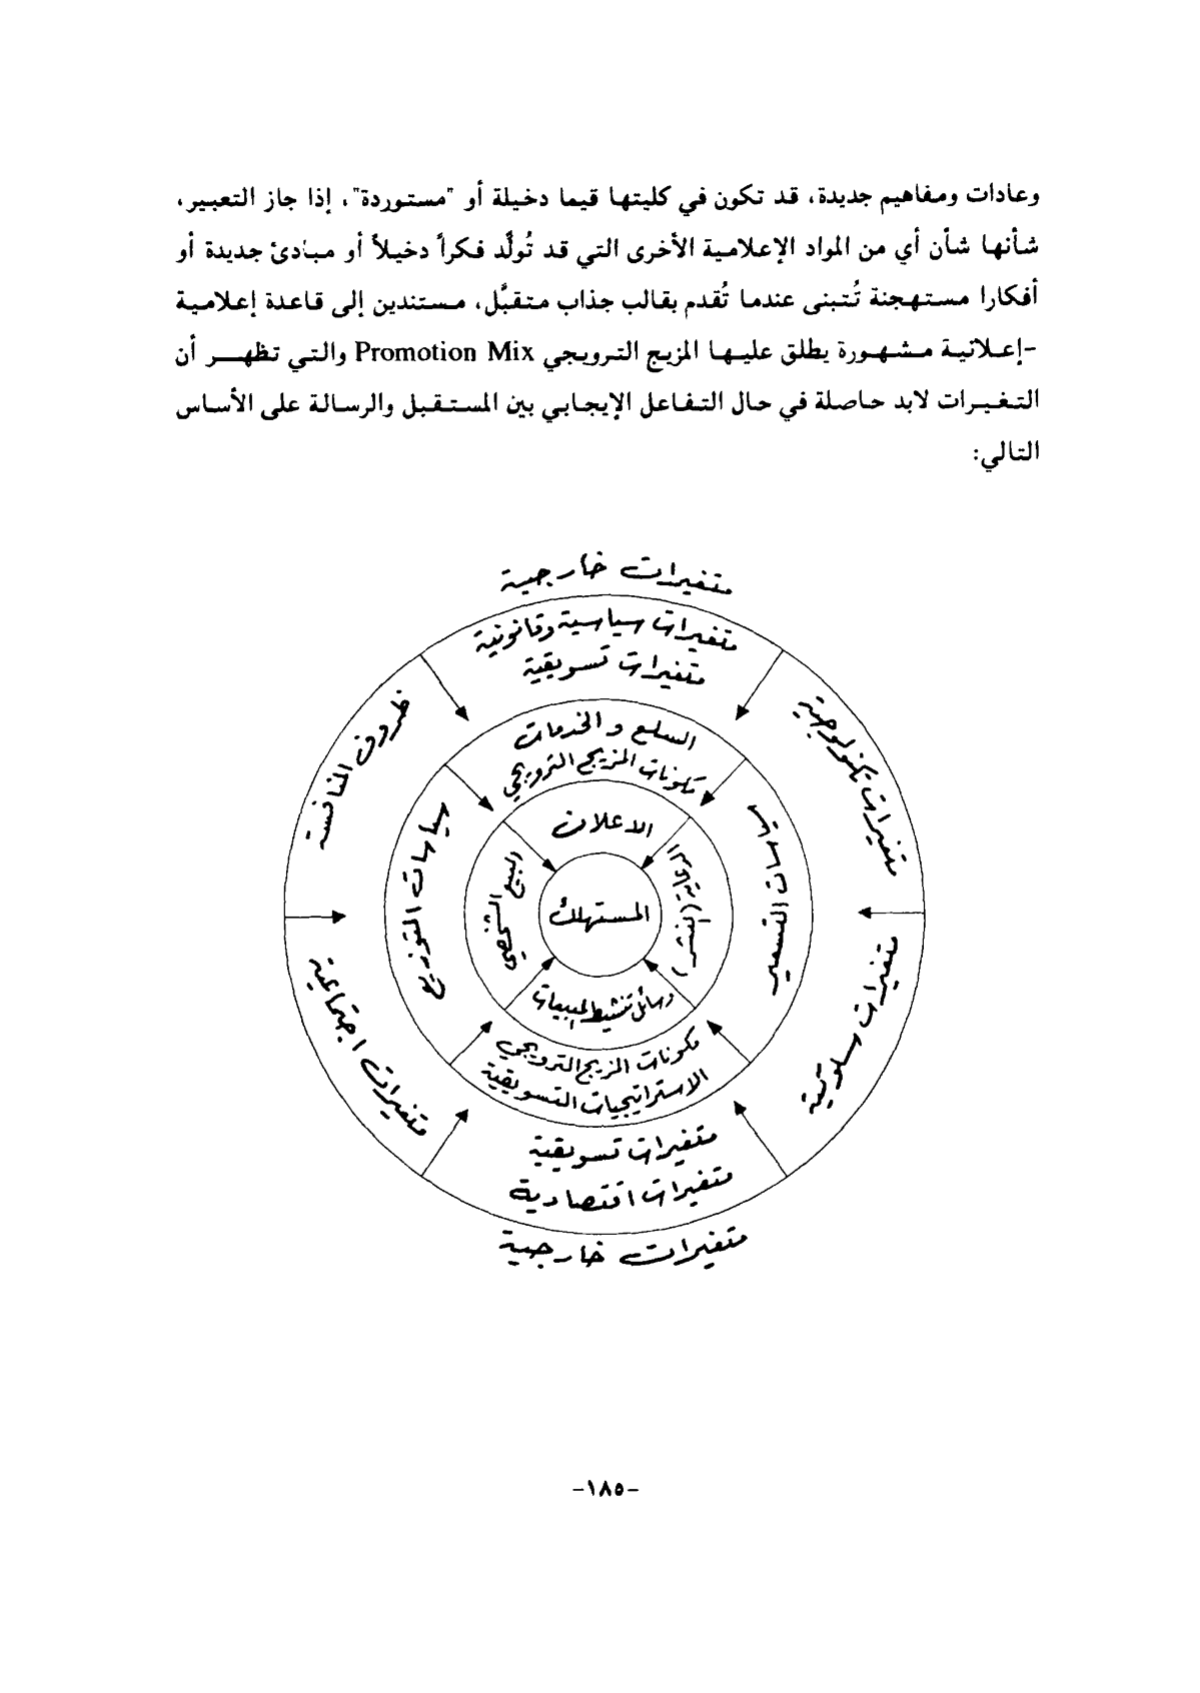 وعادات ومفاهيم جديدة، قد تكون في كليتها قيما دخيلة أو "مستوردة"، إذا جاز التعبير،
شأنها شأن أي من المواد الإعلامية الأخرى التي قد تُولِّد فكراً دخيلاً أو مبادئ جديدة أو
أفكارا مستهجنة تُتبنى عندما تُقدم بقالب جذاب متقبَّل، مستندين إلى قاعدة إعلامية
-إعلانية مشهورة يطلق عليها المزيج الترويجي Promotion Mix والتي تظهر أن
التغيرات لابد حاصلة في حال التفاعل الإيجابي بين المستقبل والرسالة على الأساس
التالي:
متغيرات خارجية
متغيرات سياسية وقانونية
متغيرات تسويقية
متغيرات تكنولوجية
ظروف المنافسة
السلع و الخدمات
مكونات المزيج الترويجي
سياسات التسعير
سياسات التوزيع
الاعلان
(النشر)
البيع الشخصي
المستهلك
وسائل تنشيط المبيعات
مكونات المزيج الترويجي
الاستراتيجيات التسويقية
متغيرات سلوكية
متغيرات اجتماعية
متغيرات تسويقية
متغيرات اقتصادية
متغيرات خارجية
-١٨٥-